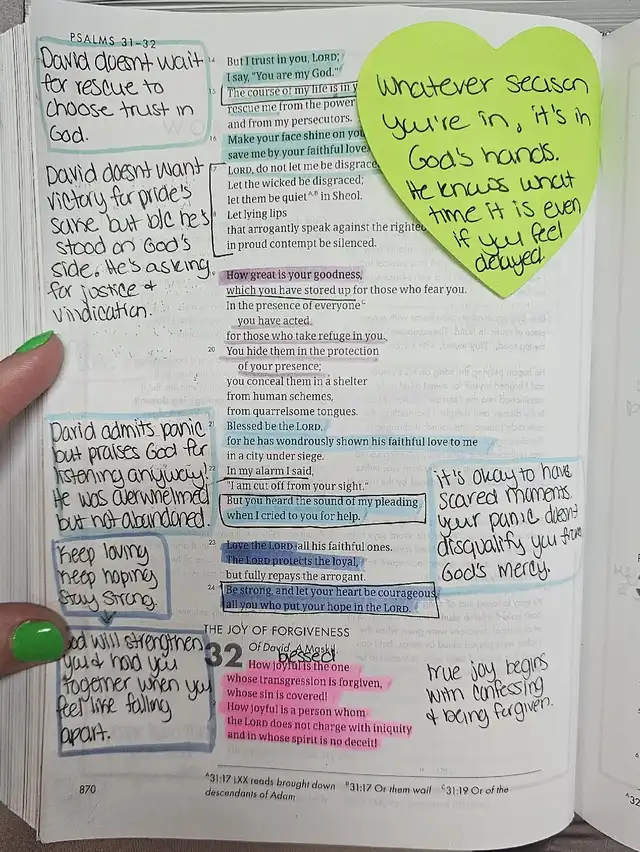 PSALMS 31–32
David doesnt wait
for rescue to
choose trust in
God.
David doesnt want
victory for pride's
sake but b/c he's
stood on God's
side. He's asking
for justice +
vindication.
David admits panic
but praises God for
listening anyway!
He was overwhelmed
but not abandoned.
Keep loving
Keep hoping
Stay Strong.
God will strengthen
you & hold you
together when you
feel like falling
apart.
14 But I trust in you, LORD;
I say, "You are my God."
15 The course of my life is in y
rescue me from the power
and from my persecutors.
16 Make your face shine on you
save me by your faithful love.
17 LORD, do not let me be disgrace
Let the wicked be disgraced;
let them be quiet^A,B in Sheol.
18 Let lying lips
that arrogantly speak against the righteo
in proud contempt be silenced.
How great is your goodness,
which you have stored up for those who fear you.
In the presence of everyone^C
you have acted
for those who take refuge in you.
20 You hide them in the protection
of your presence;
you conceal them in a shelter
from human schemes,
from quarrelsome tongues.
21 Blessed be the LORD,
for he has wondrously shown his faithful love to me
in a city under siege.
22 In my alarm I said,
"I am cut off from your sight."
But you heard the sound of my pleading
when I cried to you for help.
23 Love the LORD, all his faithful ones.
The LORD protects the loyal,
but fully repays the arrogant.
24 Be strong, and let your heart be courageous,
all you who put your hope in the LORD.
THE JOY OF FORGIVENESS
32 Of David. A Maskil.
blessed
How joyful is the one
whose transgression is forgiven,
whose sin is covered!
How joyful is a person whom
the LORD does not charge with iniquity
and in whose spirit is no deceit!
Whatever season
you're in, it's in
God's hands.
He knows what
time it is even
if you feel
delayed.
it's okay to have
scared moments.
your panic doesn't
disqualify you from
God's mercy.
True joy begins
with confessing
& being forgiven.
870
^A31:17 LXX reads brought down ^B31:17 Or them wail ^C31:19 Or of the
descendants of Adam